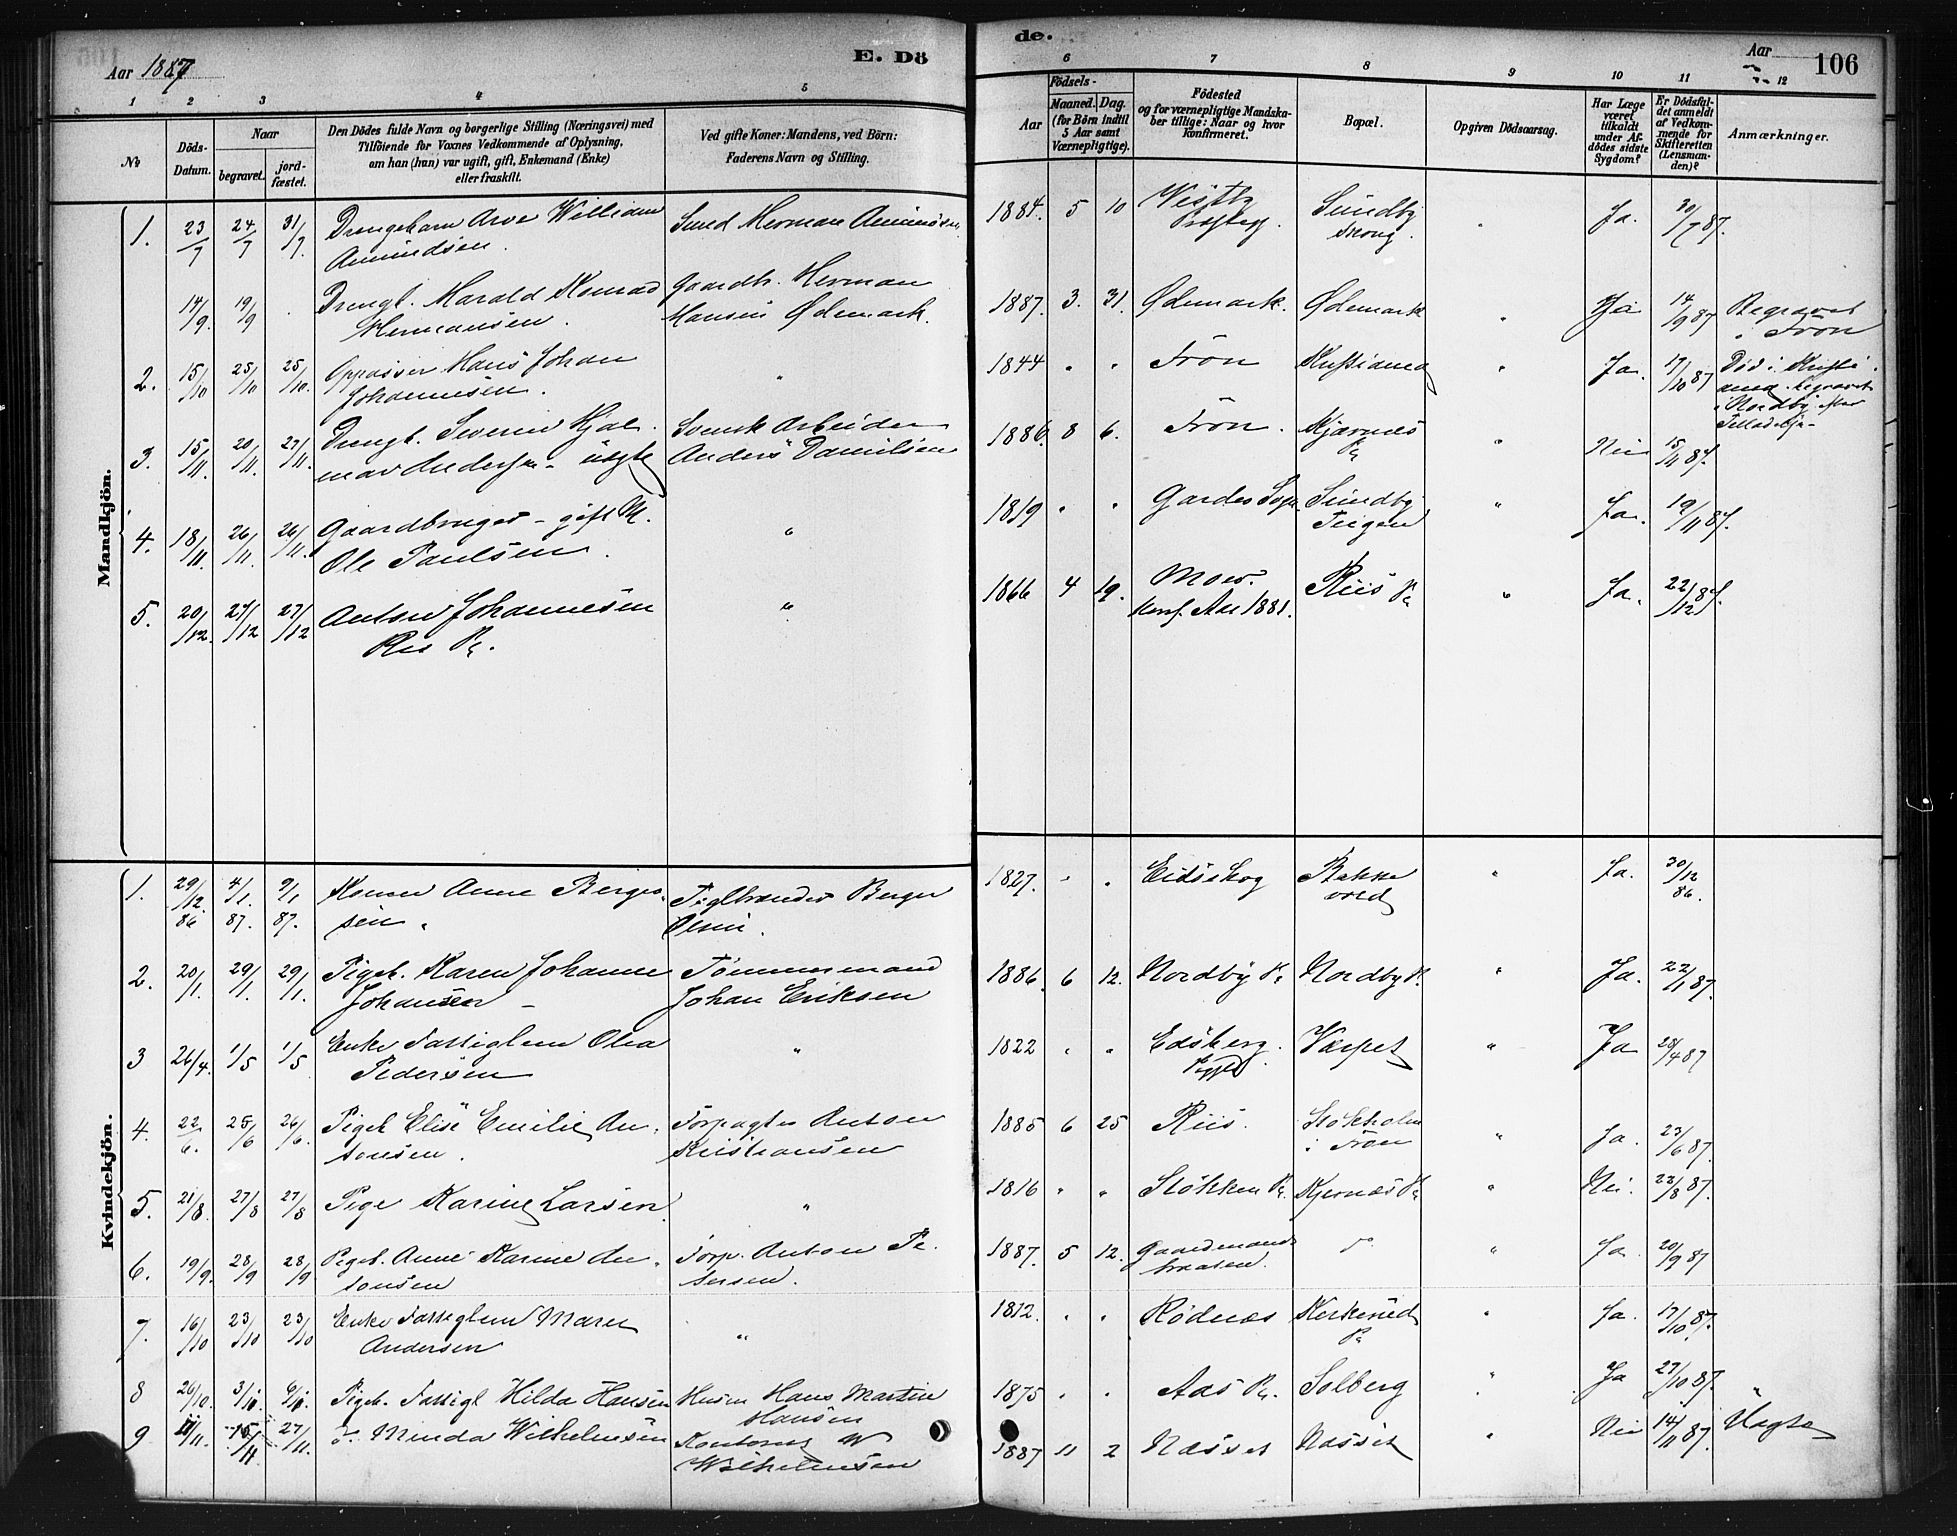 Aar 1887
E. Dö
de.
Aar
106
1 2 3 4 5 6 7 8 9 10 11 12
No
Döds-
Datum.
Naar
begravet.
jord-
fæstet.
Den Dödes fulde Navn og borgerlige Stilling (Næringsvei) med
Tilföiende for Voxnes Vedkommende af Oplysning,
om han (hun) var ugift, gift, Enkemand (Enke)
eller fraskilt.
Ved gifte Koner: Mandens, ved Börn:
Faderens Navn og Stilling.
Födsels-
Aar
Maaned.
Dag.
(for Börn indtil
5 Aar samt
Værnepligtige).
Födested
og for værnepligtige Mandska-
ber tillige: Naar og hvor
konfirmeret.
Bopæl.
Opgiven Dödsaarsag.
Har Læge
været
tilkaldt
under Af-
dödes sidste
Sygdom?
Er Dödsfal-
det anmeldt
af Vedkom-
mende for
Skifteretten
(Lensman-
den)?
Anmærkninger.
Mandkjön.
1. 23/7 24/7 31/7. Drengebarn Arve William Smed Herman Amundsen 1884. 5 10 Vestby Sundby Ja. 30/7 87.
Amundsen. Prgjeld. skoug.
14/9. 19/9 Drengb. Harald Konrad Gaardbr. Herman 1887. 3. 31. Ødemark. Ødemark " Ja 14/9 87 Begravet
Hermansen. Hansen Ødemark. i Frön
2. 15/10 25/10 25/10. Oppasser Hans Johan " 1844 " " Frön Kristiania " Ja. 17/10 87 Död i Kristi
Johannesen. ania begravet
i Nordby
3. 15/11. 20/11. 27/11. Drengb. Severin Hjal- Svensk Arbeider 1886. 8 6. Frön. Kjærnes " Nei 15/11 87.
mar Andersen - uægte Anders Danielsen Pl
4. 18/11. 26/11. 26/11. Gaardbruger - gift M. " 1819 " " Garder Sogn Sundby " Ja. 19/11 87.
Ole Paulsen. Teigen
5. 20/12. 27/12 27/12 Anton Johannesen " 1866 4 19. Moer. Riis Pl " Ja. 22/12 87.
Riis Pl. Konf. Aar 1881.
Kvindekjön.
1. 29/12. 86 4/1. 87. 9/1 87. Konen Anne Berger- Teglbrænder Berger 1827. " " Eidsskog Bakke " Ja. 30/12 86.
sen. Olsen.
2. 20/1. 29/1. 29/1. Pigeb. Karen Johanne Tømmermand 1886. 6 12. Nordby Pl Nordby Pl. " Ja. 22/1 87.
Johansen - Johan Eriksen
3 26/4. 1/5 1/5 Enke Fattiglem Olea " 1822 " " Edsberg. Varpet " Ja 28/4 87
Pedersen
4. 22/6. 25/6 26/6. Pigeb Elise Emilie An- Forpagter Anton 1885 6 25 Riis. Stokholm " Ja. 23/6 87.
tonsen. Kristiansen i Frön
5. 21/8. 27/8 27/8 Pige Karine Larsen " 1816 " " Stökken Pl. Kjernæs Pl " Nei. 22/8 87.
6. 19/9. 28/9 28/9 Pigeb. Anne Karine An- Forp. Anton Pe- 1887. 5 12. Gaardmands " Ja. 20/9 87
tonsen tersen. braaten.
7. 16/10 23/10 23/10 Enke Fattiglem Maren " 1812. " " Rödnæs Kirkerud " Ja. 17/10. 87.
Andersen Pl
8 26/10. Pigeb. Fattigl Hilda Hansen Husm Hans Martin 1875 " " Aas Pl. Solberg " Ja 27/10 87.
Hansen
9 11/11. 15/11 27/11. Minda Wilhelmsen W 1887 11 2 Næsset Næsset " Nei 14/11 87. Uægte
Wilhelmsen